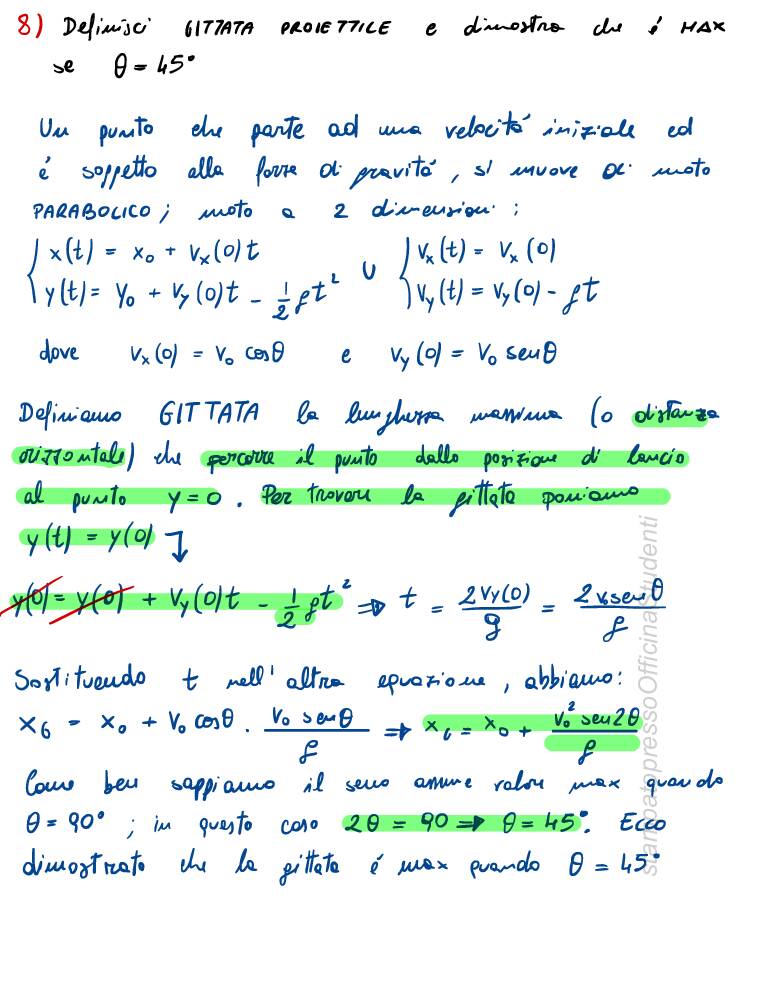 8) Definisci GITTATA PROIETTILE e dimostra che é MAX
se θ = 45°
Un punto che parte ad una velocitá iniziale ed
é soggetto alla forza di gravitá, si muove di moto
PARABOLICO; moto a 2 dimensioni:
{ x(t) = x₀ + Vx(0)t ∪ { Vx(t) = Vx(0)
{ y(t) = y₀ + Vy(0)t - 1/2 gt² { Vy(t) = Vy(0) - gt
dove Vx(0) = V₀ cosθ e Vy(0) = V₀ senθ
Definiamo GITTATA la lunghezza massima (o distanza
orizzontale) che percorre il punto dalla posizione di lancio
al punto y = 0. Per trovare la gittata poniamo
y(t) = y(0) ↴
y(0) = y(0) + Vy(0)t - 1/2 gt² ⇒ t = 2Vy(0)/g = 2V₀senθ/g
Sostituendo t nell'altra equazione, abbiamo:
x_G = x₀ + V₀ cosθ · V₀ senθ/g ⇒ x_G = x₀ + V₀² sen2θ/g
Come ben sappiamo il seno assume valore max quando
θ = 90°; in questo caso 2θ = 90 ⇒ θ = 45°. Ecco
dimostrato che la gittata é max quando θ = 45°
stampatopressoOfficinaStudenti